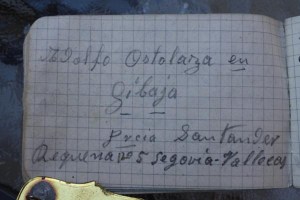 Adolfo Ostolaza en
Gibaja
Prcia Santander
Requena nº 5 Segovia-Vallecas